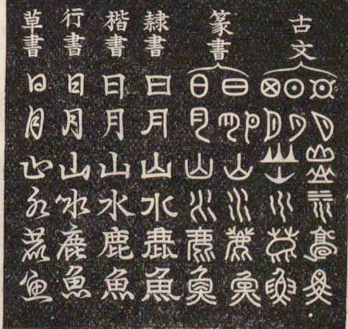 古文
篆書
日月山水鹿魚
日月山水鹿魚
隸書
日月山水鹿魚
楷書
日月山水鹿魚
行書
日月山水鹿魚
草書
日月山水鹿魚